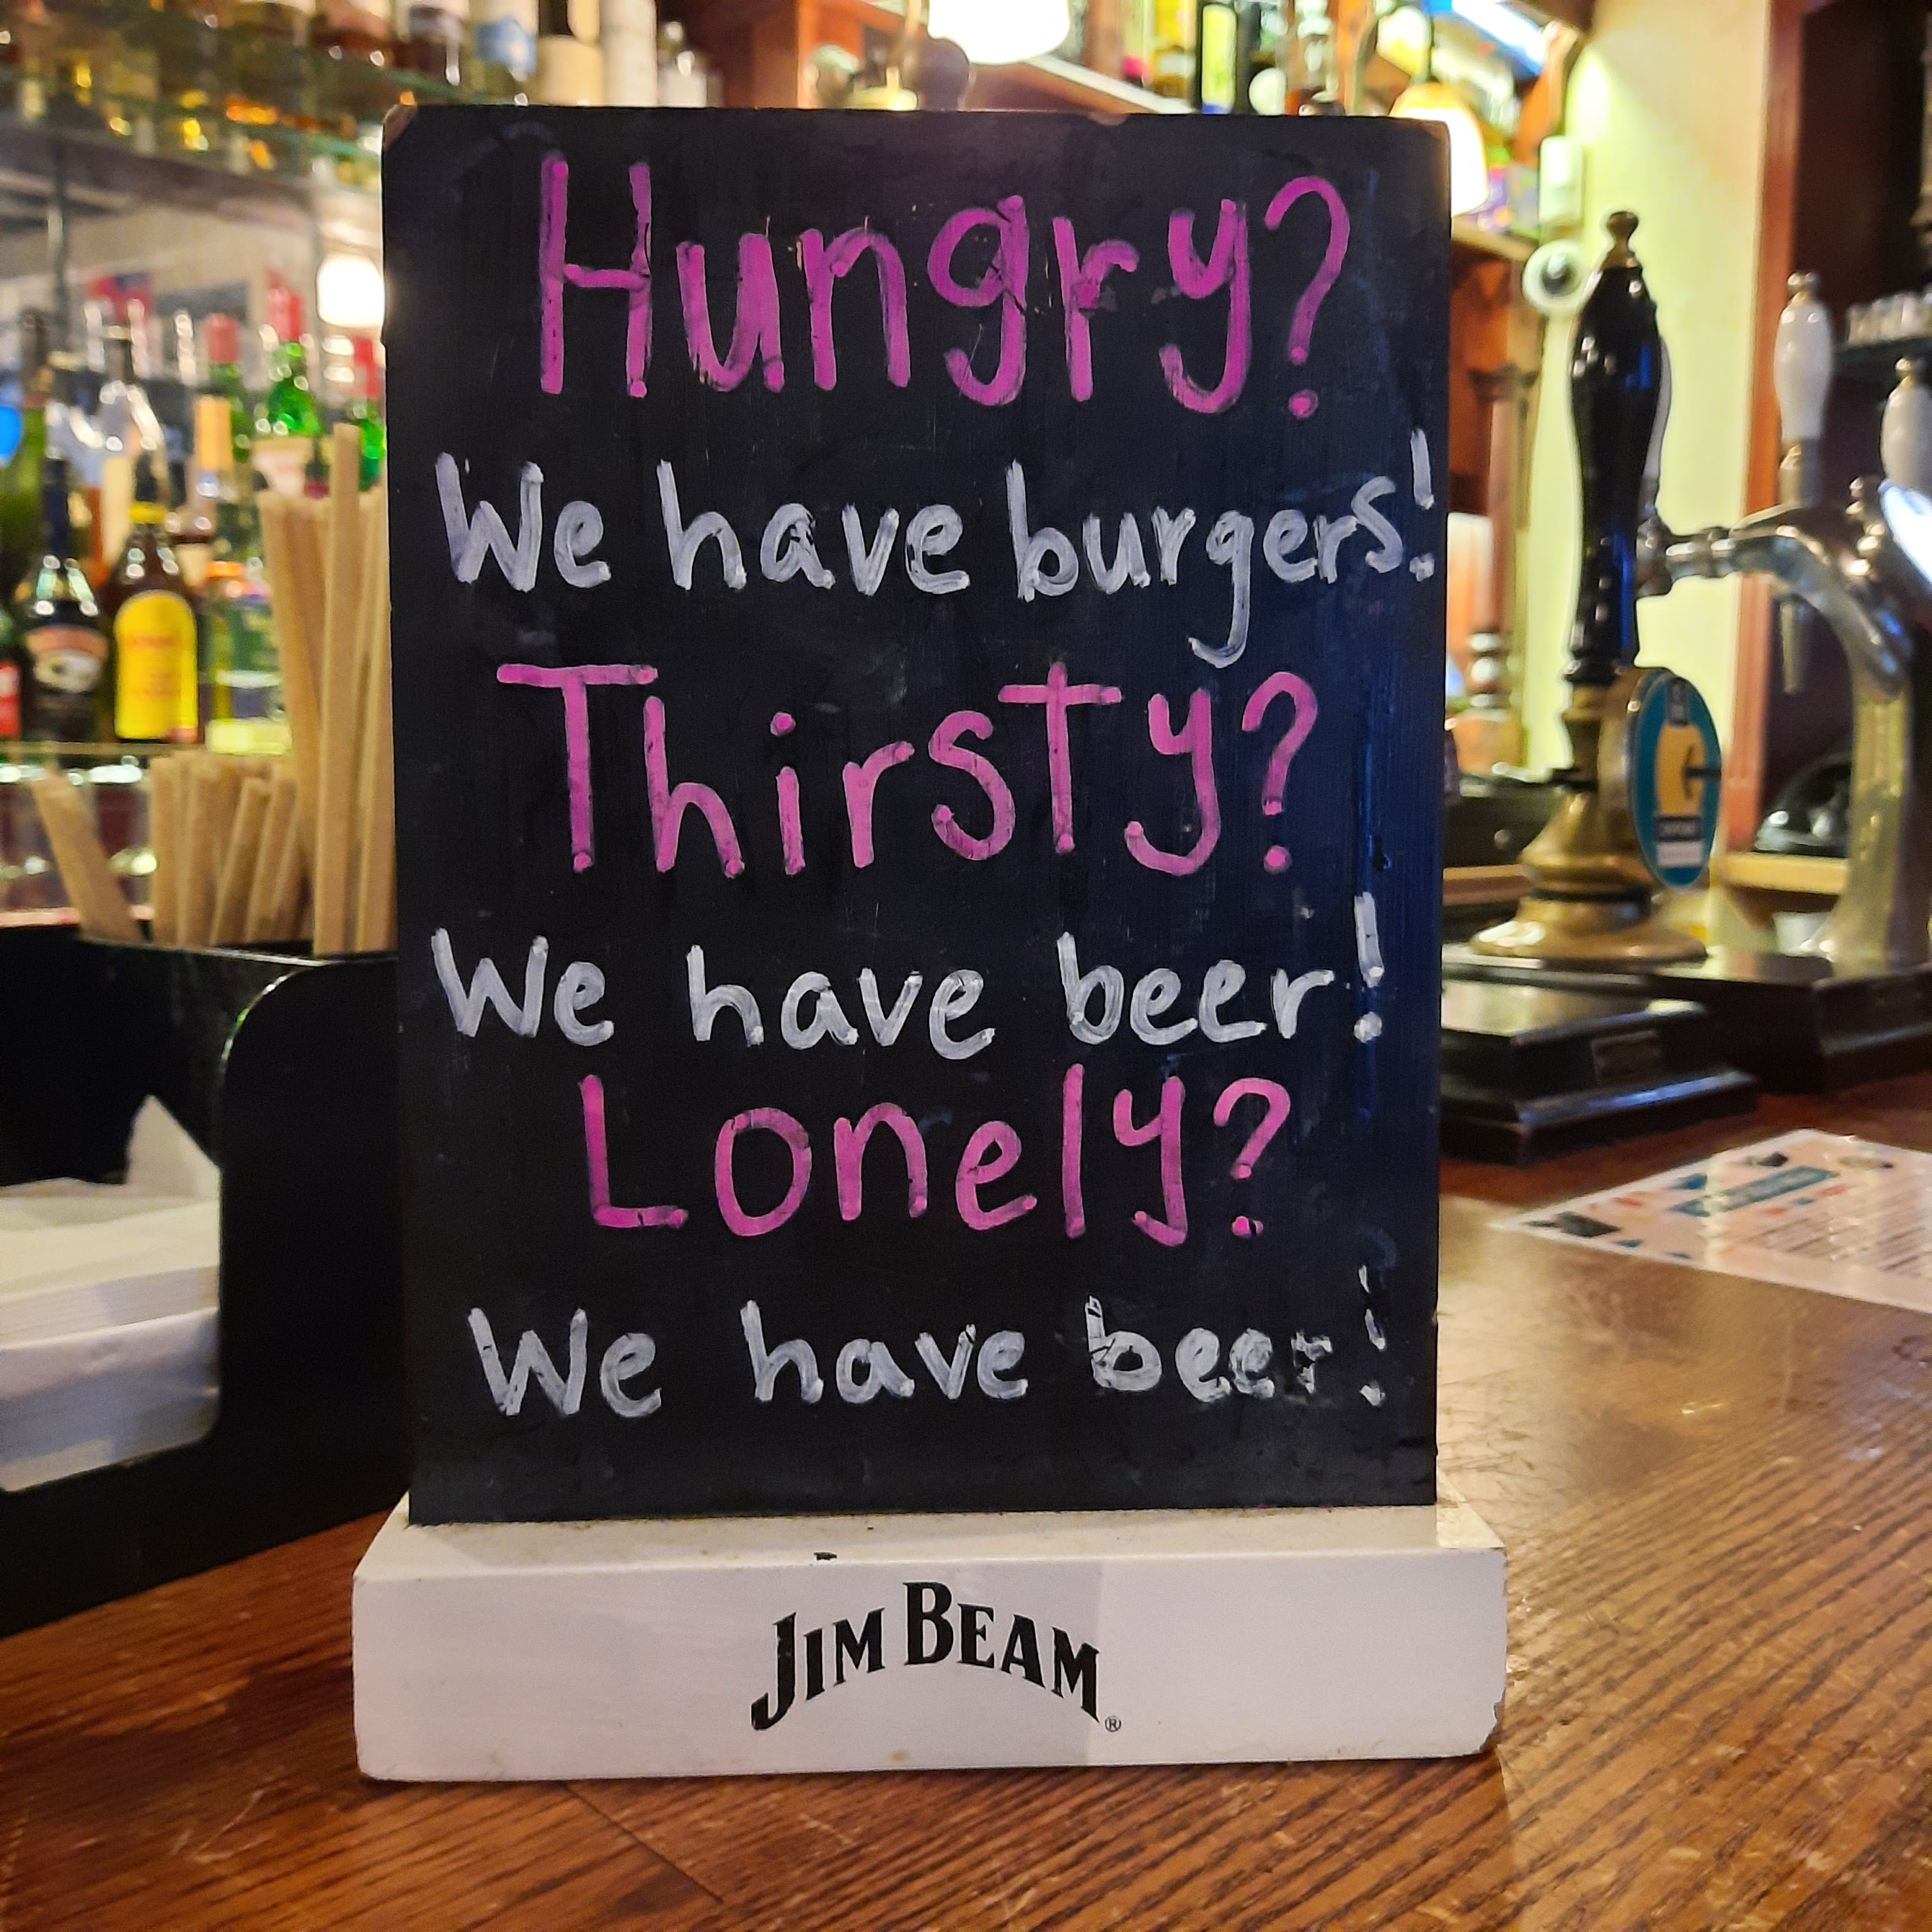 Hungry?
We have burgers!
Thirsty?
We have beer!
Lonely?
We have beer!
JIM BEAM®